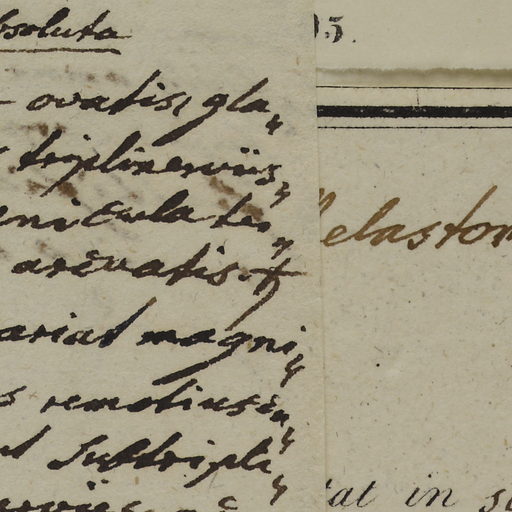 bsoluta
ovatis, gla
triplinerviis
eniculatis
ariat magni
s remotius
subtripli
95.
elastom
tat in s